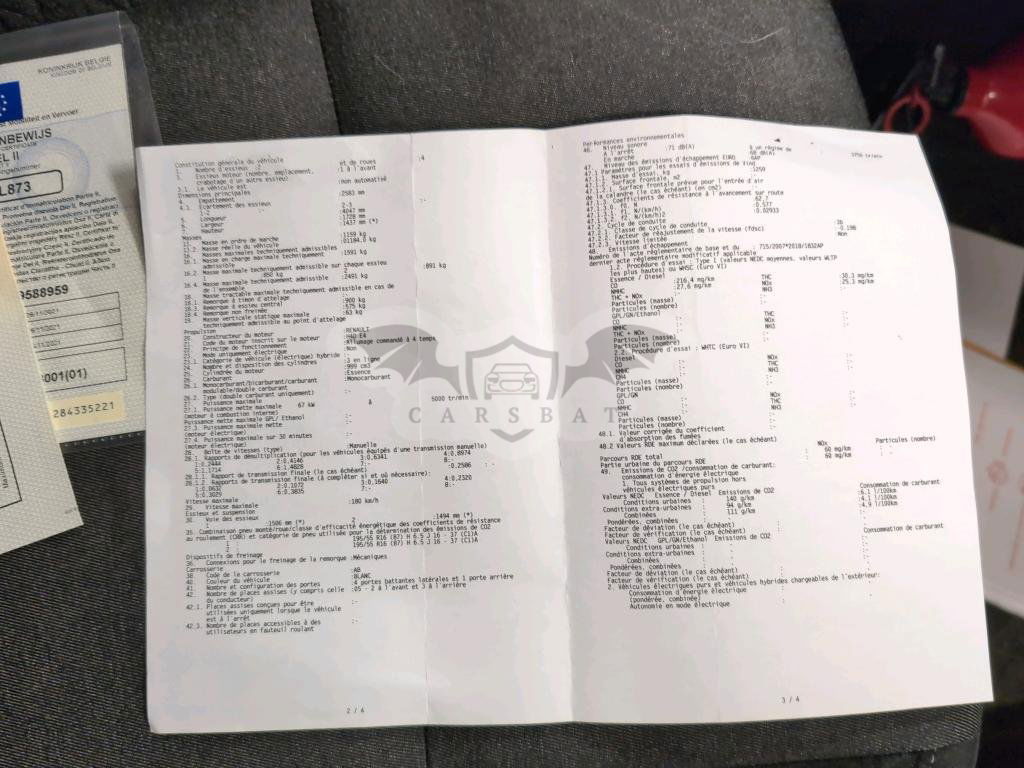 KONINKRIJK BELGIE
KINGDOM OF BELGIUM
Mobiliteit en Vervoer
NBEWIJS
EL II
L873
9588959
001(01)
284335221
Constitution générale du véhicule
1. Nombre d'essieux :2 et de roues :4
Essieux moteur (nombre, emplacement, :1 à l'avant
crabotage d'un autre essieu)
3.1. Le véhicule est :non automatisé
Dimensions principales
4. Empattement :2583 mm
4.1. Écartement des essieux
1-2 2-3
5. Longueur :4047 mm
6. Largeur :1728 mm
7. Hauteur :1437 mm (*)
Masses
Masse en ordre de marche :1159 kg
13.2 Masse réelle du véhicule :01184.0 kg
16. Masses maximales techniquement admissibles
16.1 Masse en charge maximale techniquement :1591 kg
admissible
16.2 Masse maximale techniquement admissible sur chaque essieu
1 2 :891 kg
16.4 Masse maximale techniquement admissible :2491 kg
de l'ensemble
18. Masse tractable maximale techniquement admissible en cas de
18.1. Remorque à timon d'attelage :900 kg
18.3. Remorque à essieu central :900 kg
18.4. Remorque non freinée :575 kg
19. Masse verticale statique maximale :63 kg
techniquement admissible au point d'attelage
Propulsion
20. Constructeur du moteur :RENAULT
21. Code du moteur inscrit sur le moteur :H4D E4
22. Principe de fonctionnement :Allumage commandé à 4 temps
23. Mode uniquement électrique :Non
23.1 Catégorie de véhicule (électrique) hybride :-
24. Nombre et disposition des cylindres :3 en ligne
25. Cylindrée du moteur :999 cm3
26. Carburant :Essence
26.1 Monocarburant/bicarburant/carburant :Monocarburant
modulable/double carburant
26.2. Type (double carburant uniquement) :-
27. Puissance maximale
27.1. Puissance nette maximale 67 kW à 5000 tr/min
(moteur à combustion interne)
Puissance nette maximale GPL/ Ethanol :-
27.3. Puissance maximale nette :-
(moteur électrique)
27.4. Puissance maximale sur 30 minutes :-
(moteur électrique)
28. Boîte de vitesses (type) :Manuelle
28.1 Rapports de démultiplication (pour les véhicules équipés d'une transmission manuelle)
1:0.2444 2:0.4146 3:0.6341 4:0.8974
5:1.1714 6:1.4828 7:- 8:-
28.1.1. Rapport de transmission finale (le cas échéant) :0.2506 : -
28.1.2. Rapports de transmission finale (à compléter si et où nécessaire):
1:0.0632 2:0.1072 3:0.1640 4:0.2320
5:0.3029 6:0.3835 7:- 8:-
Vitesse maximale
29. Vitesse maximale :180 km/h
Essieux et suspension
30. Voie des essieux
:1506 mm (*) 2 :1494 mm (*)
35. Combinaison pneu monté/roue/classe d'efficacité énergétique des coefficients de résistance
au roulement (CRR) et catégorie de pneu utilisée pour la détermination des émissions de CO2
1 : 195/55 R16 (87) H 6.5 J 16 - 37 (C1)A
2 : 195/55 R16 (87) H 6.5 J 16 - 37 (C1)A
Dispositifs de freinage
36. Connexions pour le freinage de la remorque :Mécaniques
Carrosserie
38. Code de la carrosserie :AB
40. Couleur du véhicule :BLANC
41. Nombre et configuration des portes :4 portes battantes latérales et 1 porte arrière
42. Nombre de places assises (y compris celle :05 - 2 à l'avant et 3 à l'arrière
du conducteur)
42.1. Places assises conçues pour être :-
utilisées uniquement lorsque le véhicule
est à l'arrêt
42.3. Nombre de places accessibles à des :-
utilisateurs en fauteuil roulant
2 / 6
Performances environnementales
46. Niveau sonore
À l'arrêt :71 dB(A) à un régime de : 3750 tr/min
En marche :68 dB(A)
47. Niveau des émissions d'échappement EURO :6AP
47.1 Paramètres pour les essais d'émissions de Vind
Masse d'essai, kg :1259
Surface frontale, m2
Surface frontale prévue pour l'entrée d'air
de la calandre (le cas échéant) (en cm2)
47.1.3. Coefficients de résistance à l'avancement sur route
47.1.3.0. f0, N :62.7
47.1.3.1. f1, N/(km/h) :0.577
47.1.3.2. f2, N/(km/h)2 :0.02933
47.2. Cycle de conduite
47.2.1. Classe de cycle de conduite :3b
47.2.2. Facteur de réajustement de la vitesse (fdsc) :0.198
47.2.3. Vitesse limitée :Non
48. Emissions d'échappement
Numéro de l'acte réglementaire de base et du : 715/2007*2018/1832AP
dernier acte réglementaire modificatif applicable
1.2. Procédure d'essai : Type I (valeurs NEDC moyennes, valeurs WLTP
les plus hautes) ou WHSC (Euro VI)
Essence / Diesel
CO :216.4 mg/km THC :30.3 mg/km
NMHC :27.6 mg/km NOx :25.3 mg/km
THC + NOx :- NH3 :-
Particules (masse) :-
Particules (nombre) :-
GPL/GN/Ethanol THC :-
CO :- NOx :-
NMHC :- NH3 :-
THC + NOx :-
Particules (masse) :-
Particules (nombre) :-
2.2. Procédure d'essai : WHTC (Euro VI)
Diesel NOx :-
CO :- THC :-
NH3 :-
CH4 :-
Particules (masse) :-
Particules (nombre) :-
GPL/GN NOx :-
CO :- THC :-
NMHC :- NH3 :-
CH4 :-
Particules (masse) :-
Particules (nombre) :-
48.1. Valeur corrigée du coefficient :-
d'absorption des fumées
48.2 Valeurs RDE maximum déclarées (le cas échéant)
NOx Particules (nombre)
Parcours RDE total : 60 mg/km :
Partie urbaine du parcours RDE : 60 mg/km :
49. Emissions de CO2 /consommation de carburant:
consommation d'énergie électrique
1. Tous systèmes de propulsion hors
véhicules électriques purs
Valeurs NEDC Essence / Diesel Emissions de CO2 Consommation de carburant
Conditions urbaines : 140 g/km :6.1 l/100km
Conditions extra-urbaines : 94 g/km :4.1 l/100km
Combinées : 111 g/km :4.9 l/100km
Pondérées, combinées :-
Facteur de déviation (le cas échéant) :-
Facteur de vérification (le cas échéant) :-
Valeurs NEDC GPL/GN/Ethanol Emissions de CO2 Consommation de carburant
Conditions urbaines :- :-
Conditions extra-urbaines :- :-
Combinées :- :-
Pondérées, combinées :- :-
Facteur de déviation (le cas échéant) :-
Facteur de vérification (le cas échéant) :-
2. Véhicules électriques purs et véhicules hybrides chargeables de l'extérieur:
Consommation d'énergie électrique :-
(pondérée, combinée)
Autonomie en mode électrique :-
3 / 4
CARSBAT